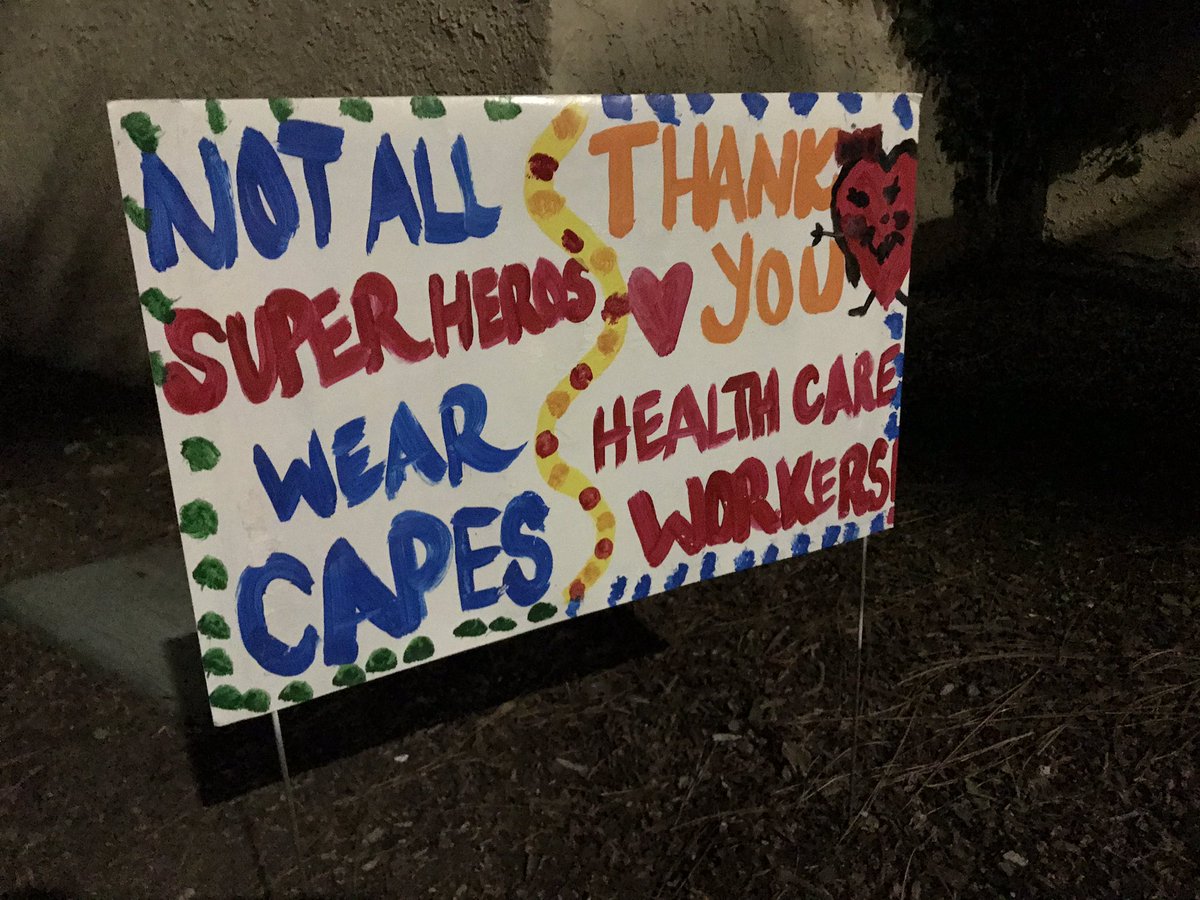 NOT ALL
SUPER HEROS
WEAR
CAPES
THANK
YOU
HEALTH CARE
WORKERS!